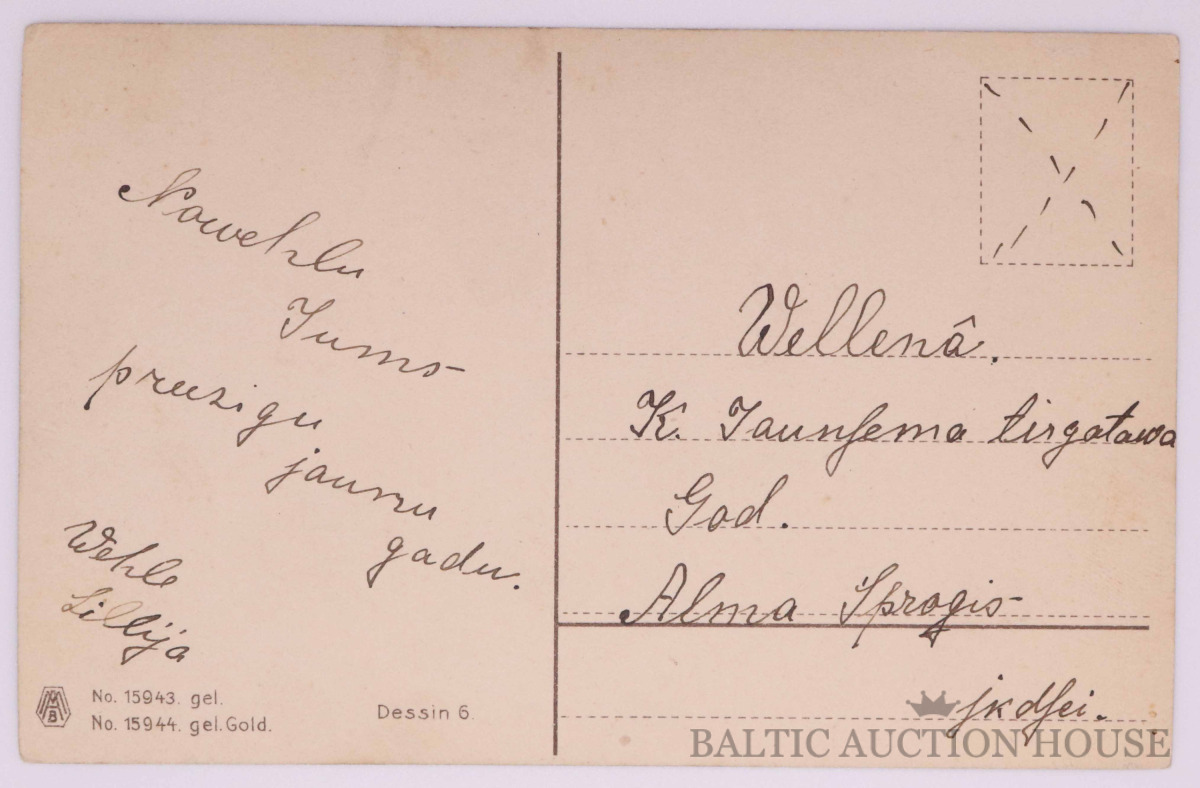 Nowehlu
Jums
preezigu
jaunu
gadu.
Wehle
Lillija
No. 15943. gel.
No. 15944. gel.Gold.
Dessin 6.
Wellenâ.
K. Jaunsema tirgotawa
God.
Alma Sprogis
jkdsei.
BALTIC AUCTION HOUSE